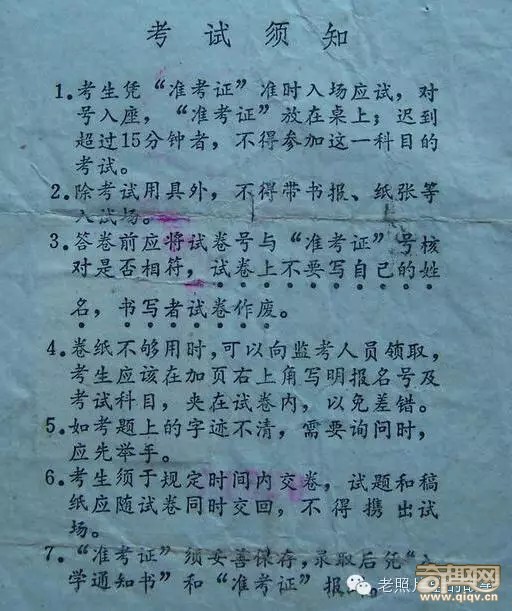 考试须知
1.考生凭“准考证”准时入场应试，对
号入座，“准考证”放在桌上；迟到
超过15分钟者，不得参加这一科目的
考试。
2.除考试用具外，不得带书报、纸张等
入试场。
3.答卷前应将试卷号与“准考证”号核
对是否相符，试卷上不要写自己的姓
名，书写者试卷作废。
4.卷纸不够用时，可以向监考人员领取，
考生应该在加页右上角写明报名号及
考试科目，夹在试卷内，以免差错。
5.如考题上的字迹不清，需要询问时，
应先举手。
6.考生须于规定时间内交卷，试题和稿
纸应随试卷同时交回，不得携出试
场。
7.“准考证”须妥善保存，录取后凭“入
学通知书”和“准考证”报
老照片
奇趣网
www.qiqv.cn